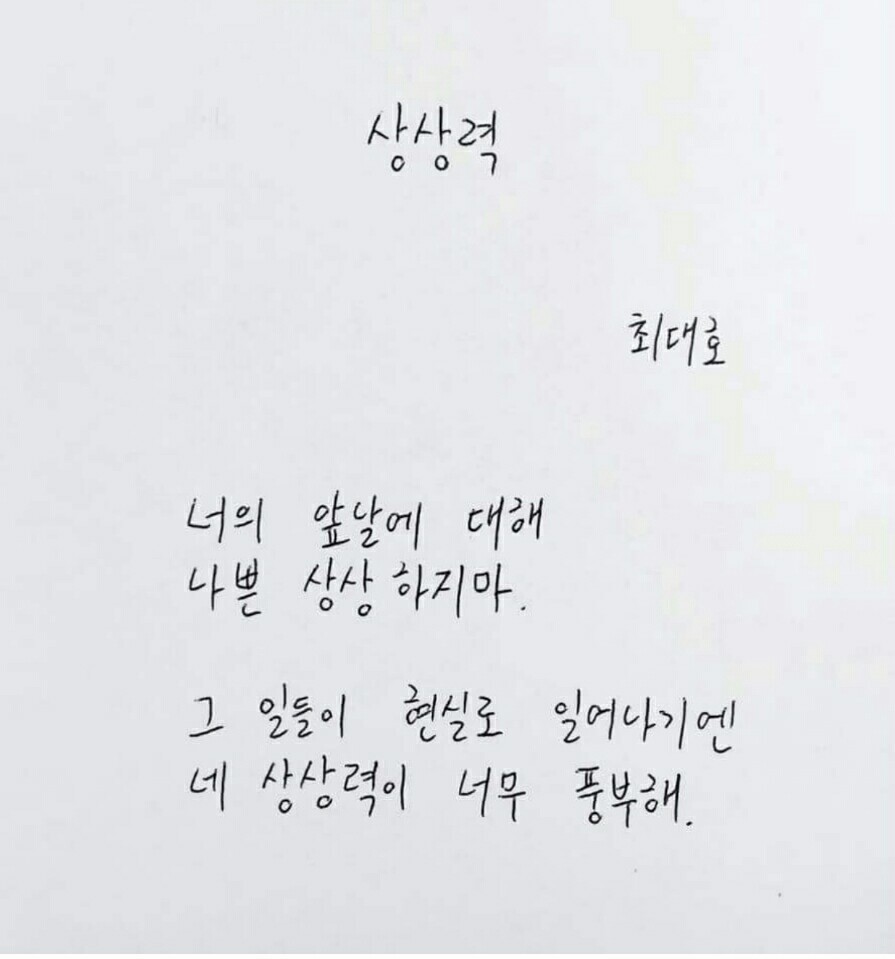 상상력
최대호
너의 앞날에 대해
나쁜 상상 하지마.
그 일들이 현실로 일어나기엔
네 상상력이 너무 풍부해.